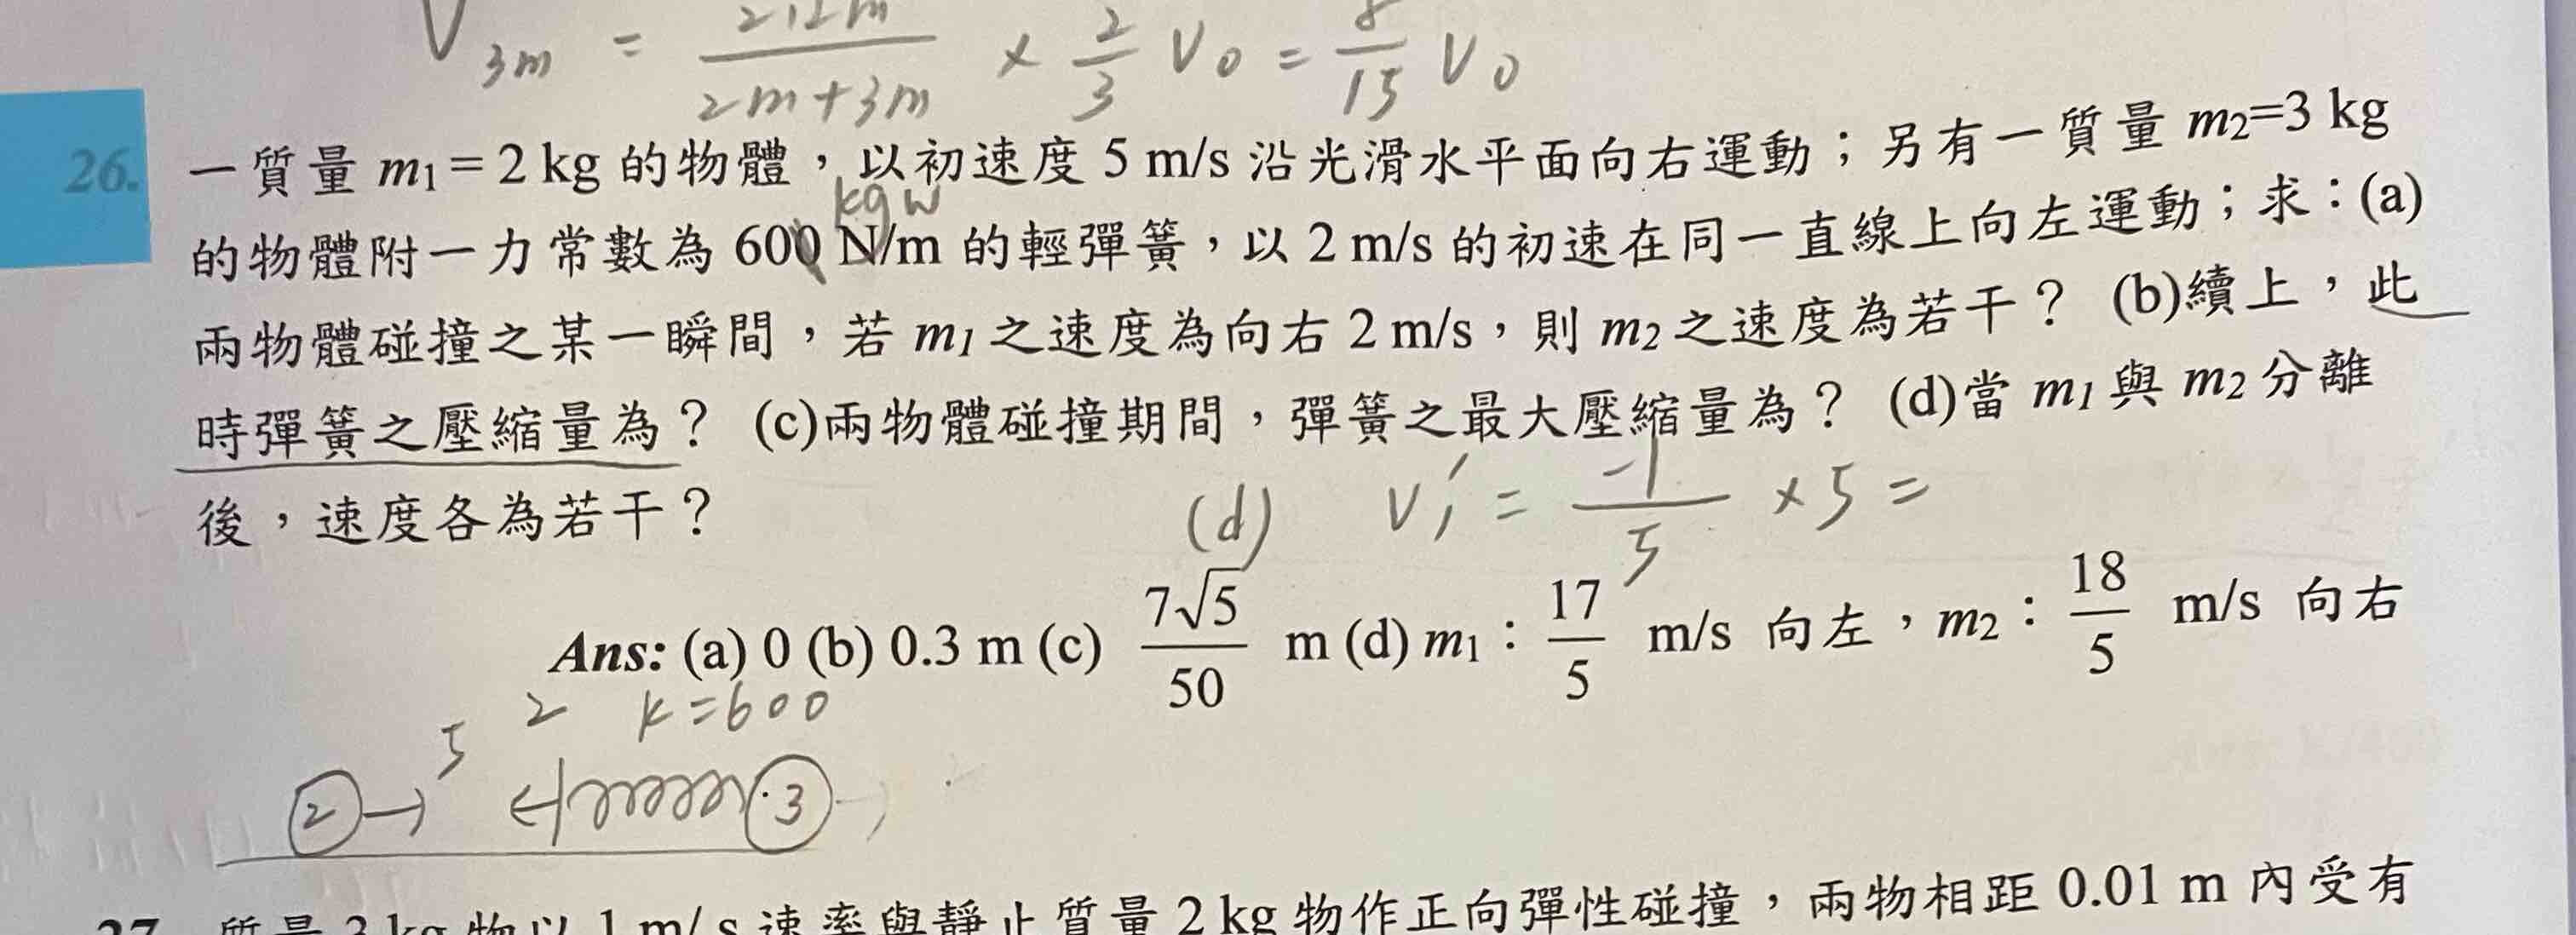 V3m = 2·2m/(2m+3m) × 2/3 V0 = 8/15 V0
26. 一質量 m1 = 2 kg 的物體，以初速度 5 m/s 沿光滑水平面向右運動；另有一質量 m2=3 kg
kgw
的物體附一力常數為 600 N/m 的輕彈簧，以 2 m/s 的初速在同一直線上向左運動；求：(a)
兩物體碰撞之某一瞬間，若 m1 之速度為向右 2 m/s，則 m2 之速度為若干？ (b)續上，此
時彈簧之壓縮量為？ (c)兩物體碰撞期間，彈簧之最大壓縮量為？ (d)當 m1 與 m2 分離
後，速度各為若干？
(d) V1' = -1/5 × 5 =
Ans: (a) 0 (b) 0.3 m (c) 7√5/50 m (d) m1：17/5 m/s 向左，m2：18/5 m/s 向右
5 2 k=600
2 3
27 質量 3 kg 物以 1 m/s 速率與靜止質量 2 kg 物作正向彈性碰撞，兩物相距 0.01 m 內受有